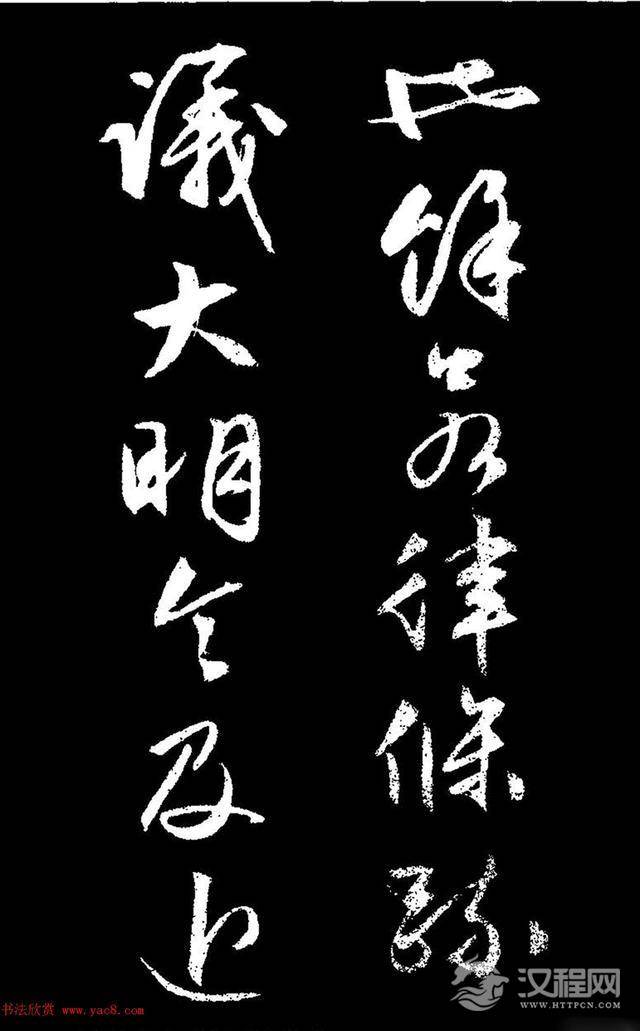 其餘若律條疏
議大明令及近
书法欣赏 www.yac8.com
汉程网
WWW.HTTPCN.COM